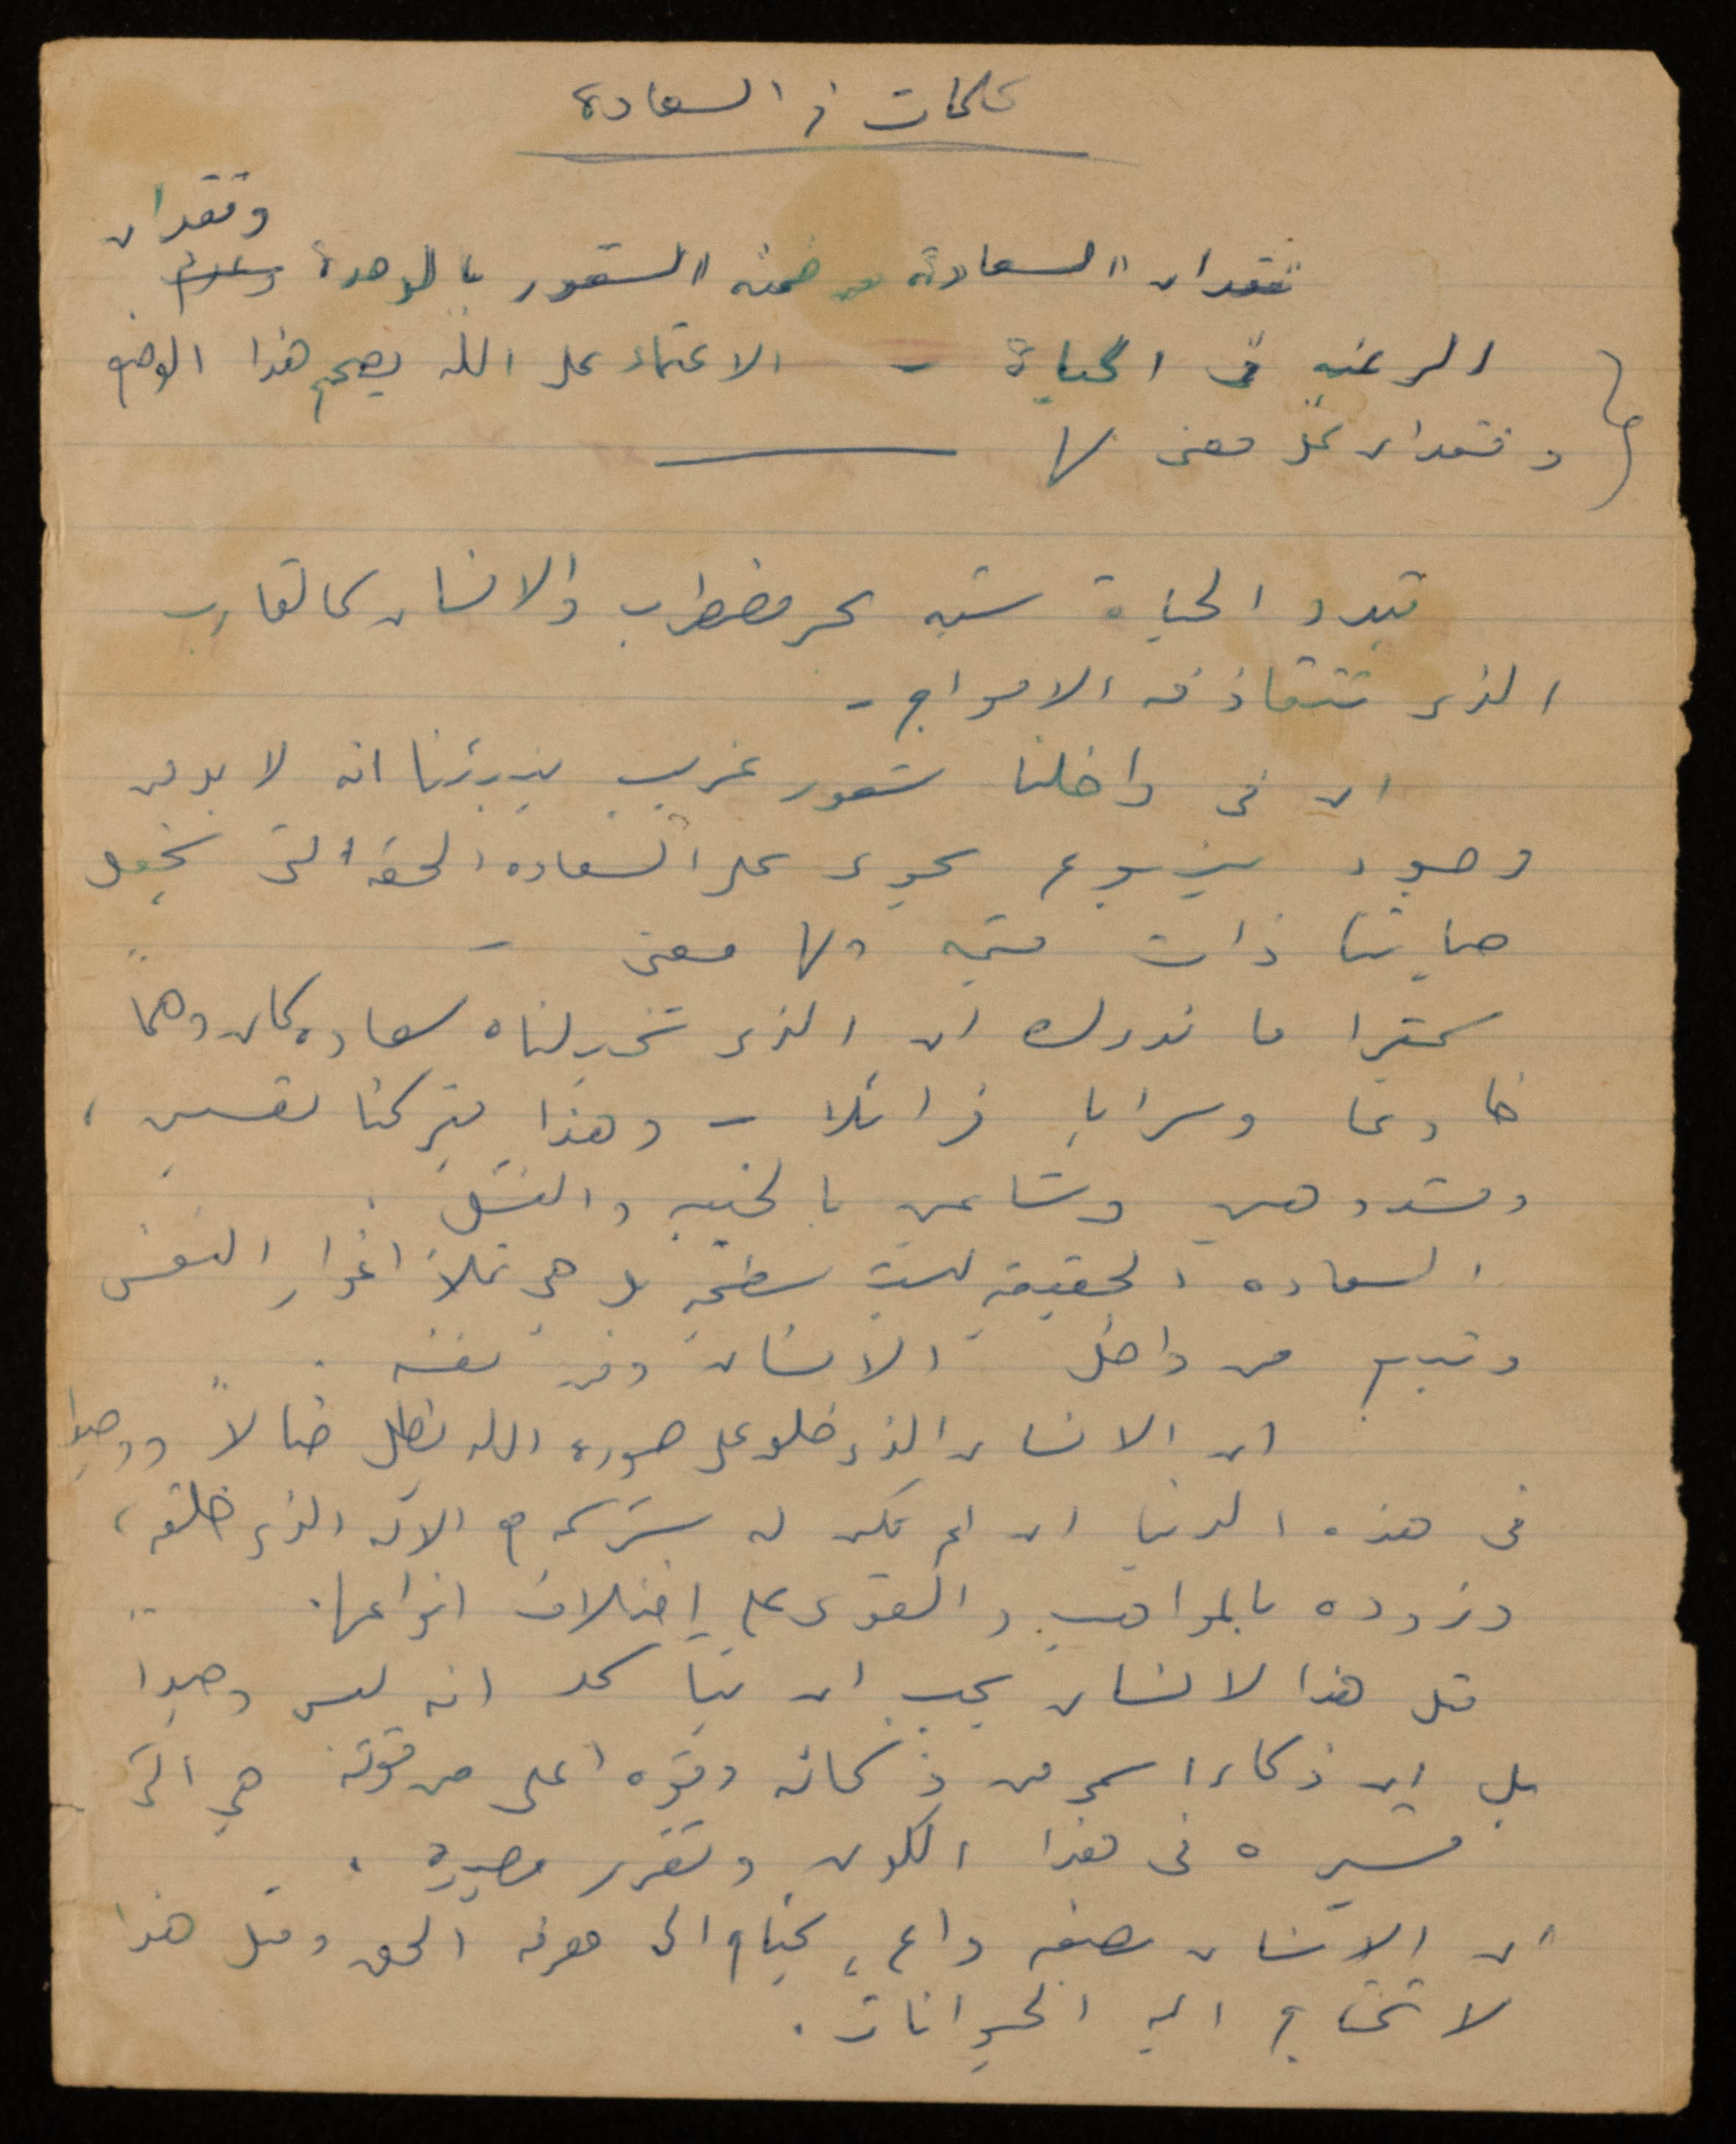 كلمات في السعادة
وفقدان
فقدان السعادة من ضمنه الشعور بالوحدة وعدم
الرغبه في الحياة - الاعتماد على الله يصحح هذا الوضع
وفقدان كل معنى لها
تبدو الحياة شبه بحر مضطرب والانسان كالقارب
الذي تتقاذفه الامواج -
ان في داخلنا شعور غريب ينبئنا انه لا بد من
وجود ينبوع يحوي على السعاده الحقه التي تجعل
حياتنا ذات قيمه ولها معنى -
كثيرا ما ندرك ان الذي تخيلناه سعاده كان وهماً
خادعا وسرابا زائلا - وهذا يتركنا تعسين ،
ومشدوهين وشاعرين بالخيبه والفشل .
السعاده الحقيقيه ليست سطحيه بل هي تملأ اغوار النفس
وتنبع من داخل الانسان ومن نفسه .
ان الانسان الذي خلق على صورة الله يظل ضالاً ووحيداً
في هذه الدنيا ان لم تكن له شركه مع الاله الذي خلقه ،
وزوده بالمواهب والقوى على اختلاف انواعها .
مثل هذا الانسان يجب ان يتأكد انه ليس وحيداً
بل ان ذكاء اسمى من ذكائه وقوه اعلى من قوته هي التي
تسيره في هذا الكون وتقرر مصيره .
ان الانسان بصفه داعي، يحتاج الى معرفه الحق ومثل هذا
لا تحتاج اليه الحيوانات .